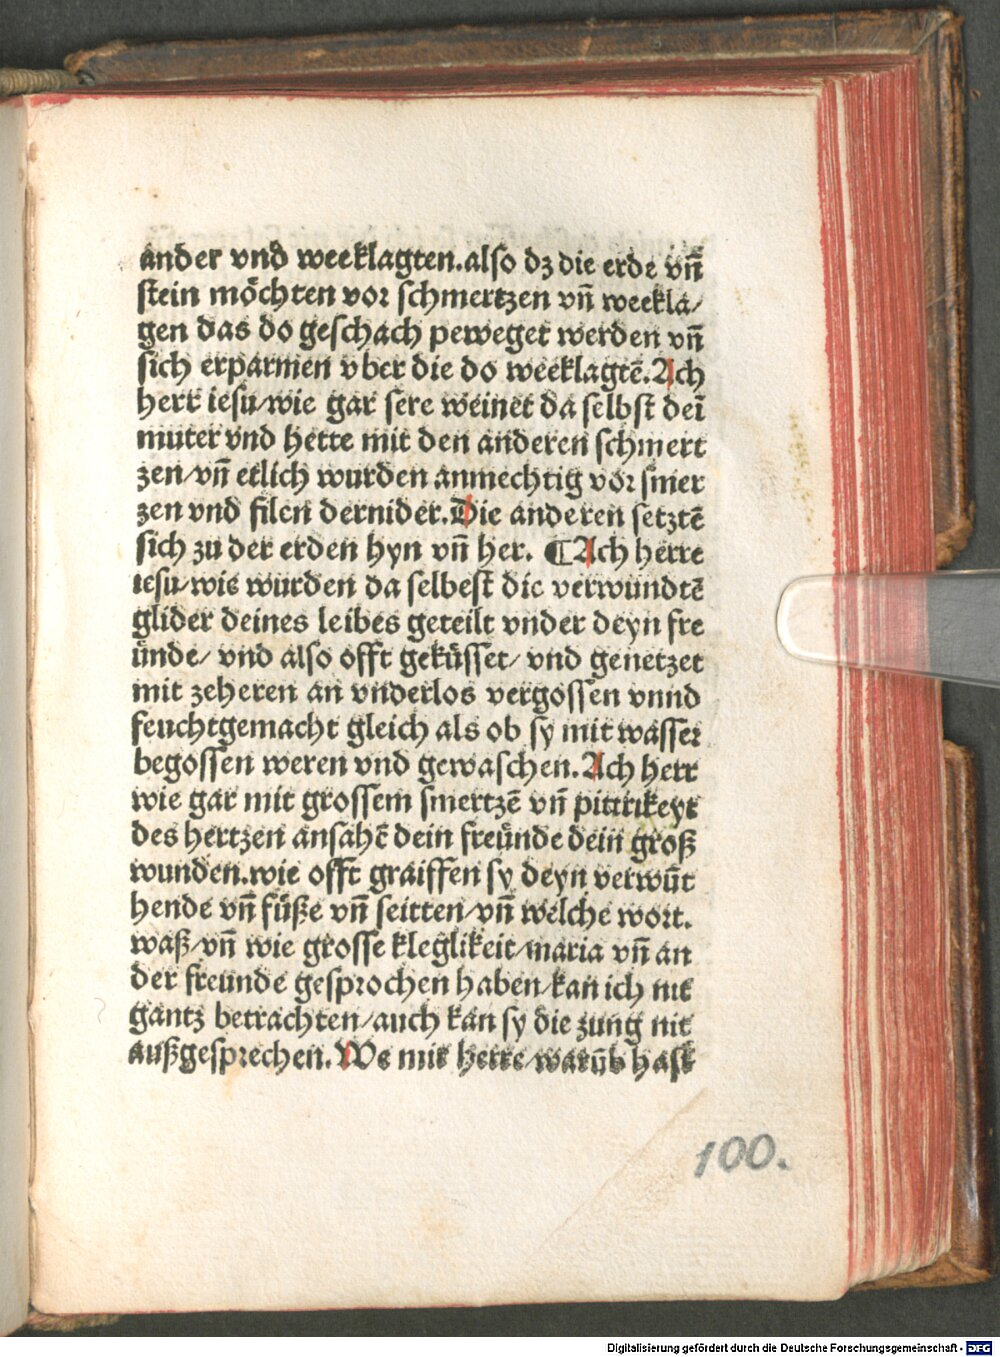 ander vnd weeklagten.also dz die erde vñ
stein möchten vor schmertzen vñ weekla/
gen das do geschach peweget werden vñ
sich erparmen vber die do weeklagtē.Ach
herr iesu/wie gar sere weinet da selbst deī
muter vnd hette mit den anderen schmert
zen/vñ etlich wurden anmechtig vor smer
zen vnd filen dernider.Die anderen setztē
sich zu der erden hyn vñ her. ¶Ach herre
iesu/wie wurden da selbest die verwundtē
glider deines leibes geteilt vnder deyn fre
ünde/ vnd also offt geküsset/ vnd genetzet
mit zeheren an vnderlos vergossen vnnd
feuchtgemacht gleich als ob sy mit wasser
begossen weren vnd gewaschen.Ach herr
wie gar mit grossem smertzē vñ pittrikeyt
des hertzen ansahē dein freünde dein groß
wunden.wie offt graiffen sy deyn verwūt
hende vñ füße vñ seitten/vñ welche wort.
waß/vñ wie grosse kleglikeit/maria vñ an
der freunde gesprochen haben/kan ich nit
gantz betrachten/auch kan sy die zung nit
außgesprechen.We mir herre/warūb hast
100.
Digitalisierung gefördert durch die Deutsche Forschungsgemeinschaft - DFG